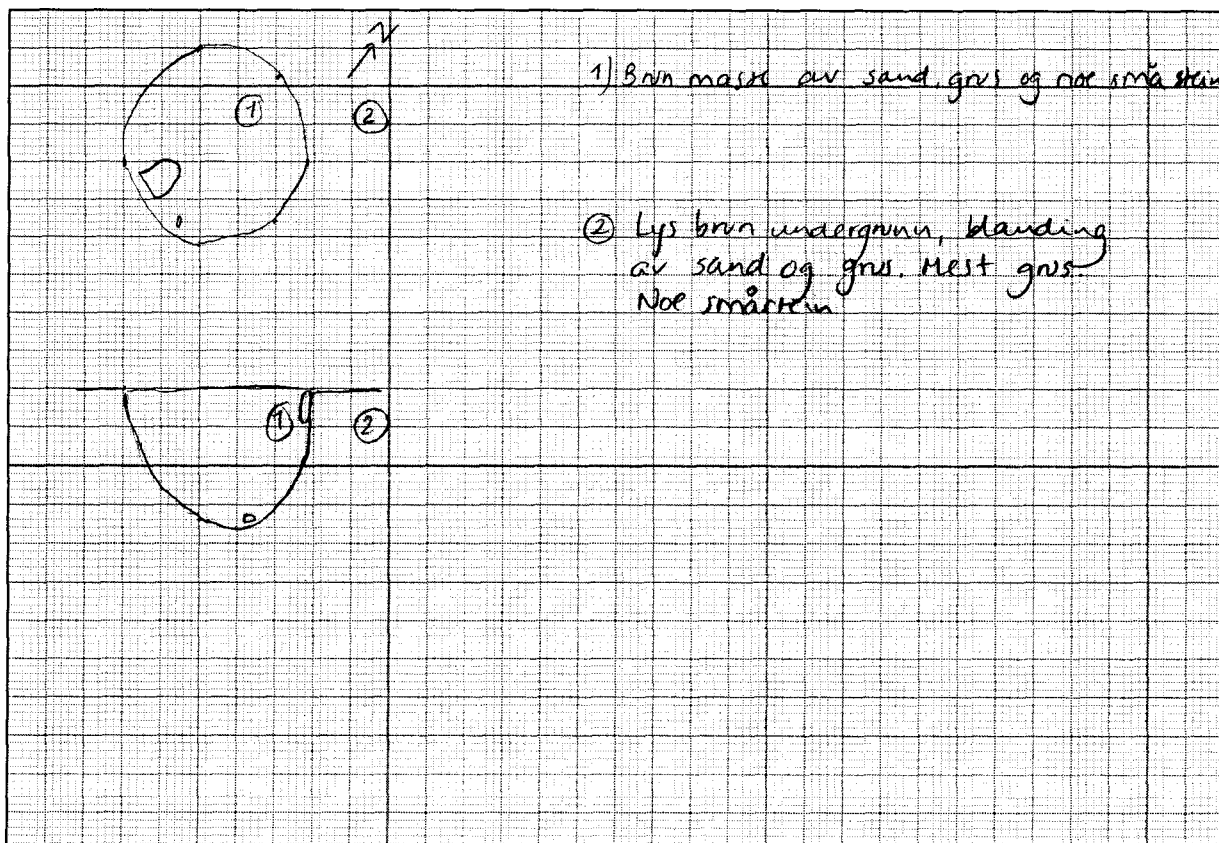 N
① ②
1) Brun masse av sand, grus og noe små stein
② Lys brun undergrunn, blanding
av sand og grus. Mest grus
Noe småstein
① ②